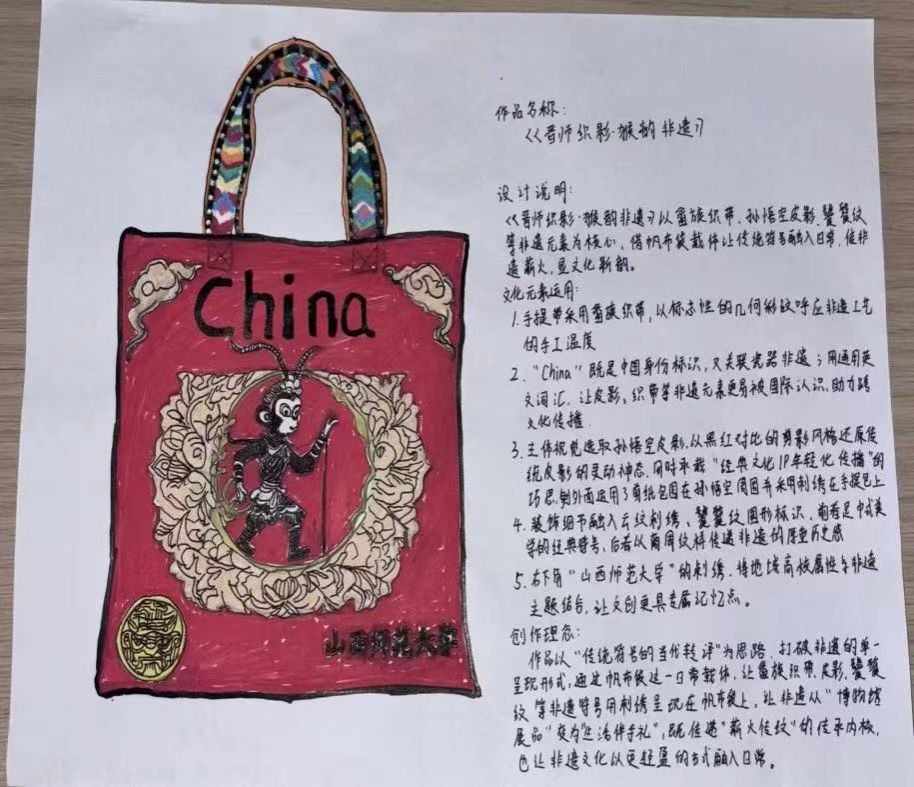 China
山西师范大学
作品名称：
《晋师织影·猴韵非遗》
设计说明：
《晋师织影·猴韵非遗》以苗族织带、孙悟空皮影、饕餮纹
等非遗元素为核心，借帆布袋载体让传统符号融入日常，使非
遗薪火，显文化新韵。
文化元素运用：
1.手提带采用苗族织带，以标志性的几何彩纹呼应非遗工艺
的手工温度
2."China"既是中国身份标识，又关联瓷器非遗；用通用英
文词汇，让皮影，织带等非遗元素更易被国际认识，助力跨
文化传播.
3.主体视觉选取孙悟空皮影，以黑红对比的剪影风格还原传
统皮影的灵动神态.同时承载"经典文化IP年轻化传播"的
巧思.例外面运用了剪纸包围在孙悟空周围并采用刺绣在手提包上
4.装饰细节融入云纹刺绣、饕餮纹图形标识，前者是中式美
学的经典符号，后者以商周纹样传递非遗的厚重历史感
5.右下角"山西师范大学"的刺绣.将地域高校属性与非遗
主题结合，让文创更具专属记忆点。
创作理念：
作品以"传统符号的当代转译"为思路.打破非遗的单一
呈现形式，通过帆布袋这一日常载体，让苗族织带，皮影，饕餮
纹等非遗符号用刺绣呈现在帆布袋上，让非遗从"博物馆
展品"变为"生活伴手礼"，既传递"薪火传纹"的传承内核，
也让非遗文化以更轻盈的方式融入日常。